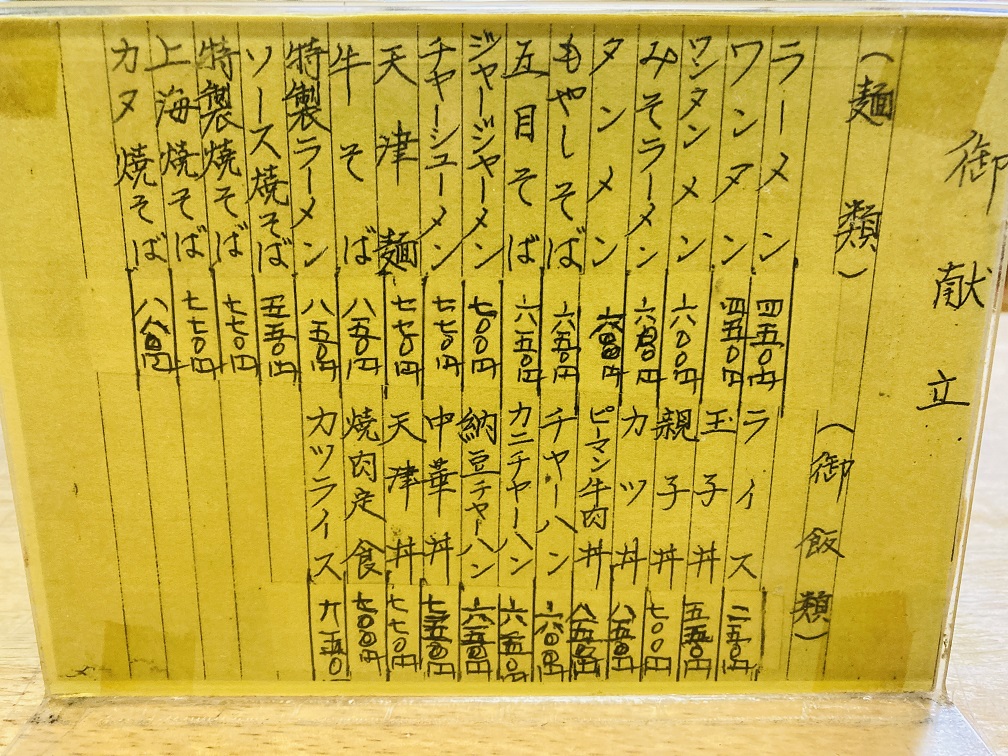 御献立
(麺類)
ラーメン 四五〇円
ワンタン 四五〇円
ワンタンメン 六〇〇円
みそラーメン
タンメン
もやしそば 六五〇円
五目そば 六五〇円
ジャージャーメン 七〇〇円
チャーシューメン 七七〇円
天津麺 七七〇円
牛そば 八五〇円
特製ラーメン 八五〇円
ソース焼そば 五五〇円
特製焼そば 七七〇円
上海焼そば 七七〇円
カタ焼そば
(御飯類)
ライス 二五〇円
玉子丼 五五〇円
親子丼 七〇〇円
カツ丼 八五〇円
ピーマン牛肉丼 八五〇円
チャーハン 六〇〇円
カニチャーハン 六五〇円
納豆チャーハン 六五〇円
中華丼
天津丼 七七〇円
焼肉定食
カツライス 九五〇